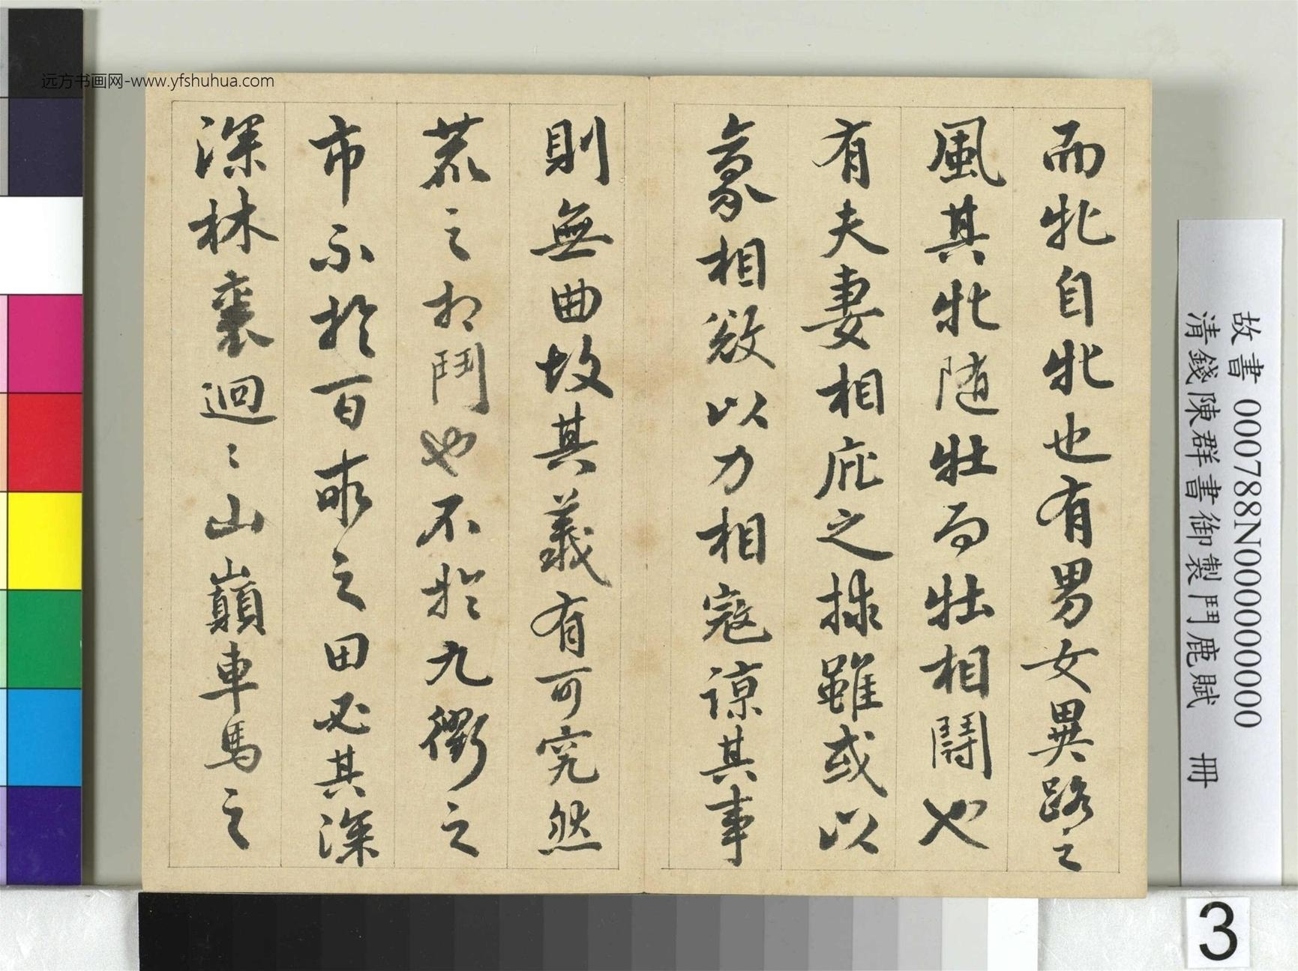 远方书画网-www.yfshuhua.com
而牝自牝也有男女異路之
風其牝隨牡而牡相鬭也
有夫妻相庇之操雖或以
豪相欲以力相寇諒其事
則無曲故其義有可究然
之相鬥也不於九衢之
市不於百畝之田必其深
深林裏迴〻山巔車馬之
故書 000788N000000000
清錢陳群書御製鬥鹿賦 冊
3